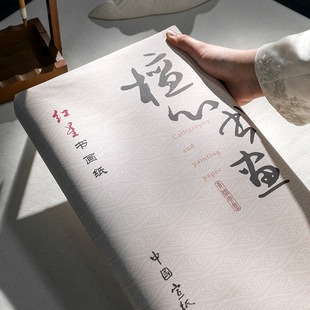 红星书画纸
檀心书画
Calligraphy
and
Painting
Paper
中國宣纸